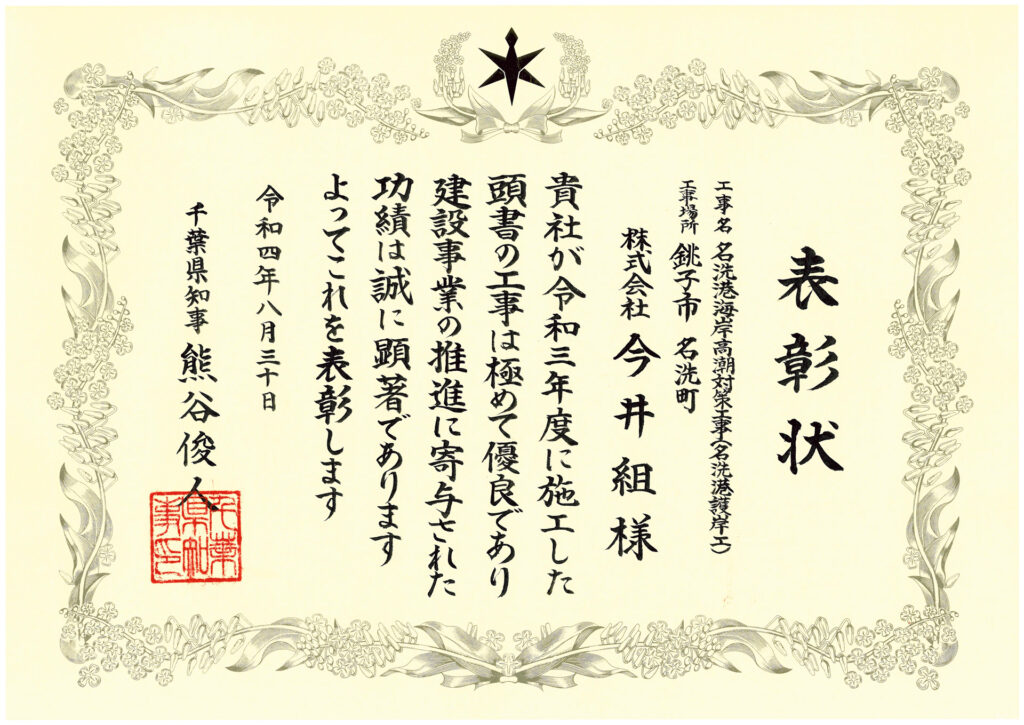 表彰状
工事名 名洗港海岸高潮対策工事(名洗港護岸工)
工事場所 銚子市 名洗町
株式会社 今井組様
貴社が令和三年度に施工した
頭書の工事は極めて優良であり
建設事業の推進に寄与された
功績は誠に顕著であります
よってこれを表彰します
令和四年八月三十日
千葉県知事 熊谷俊人
千葉
県知
事印